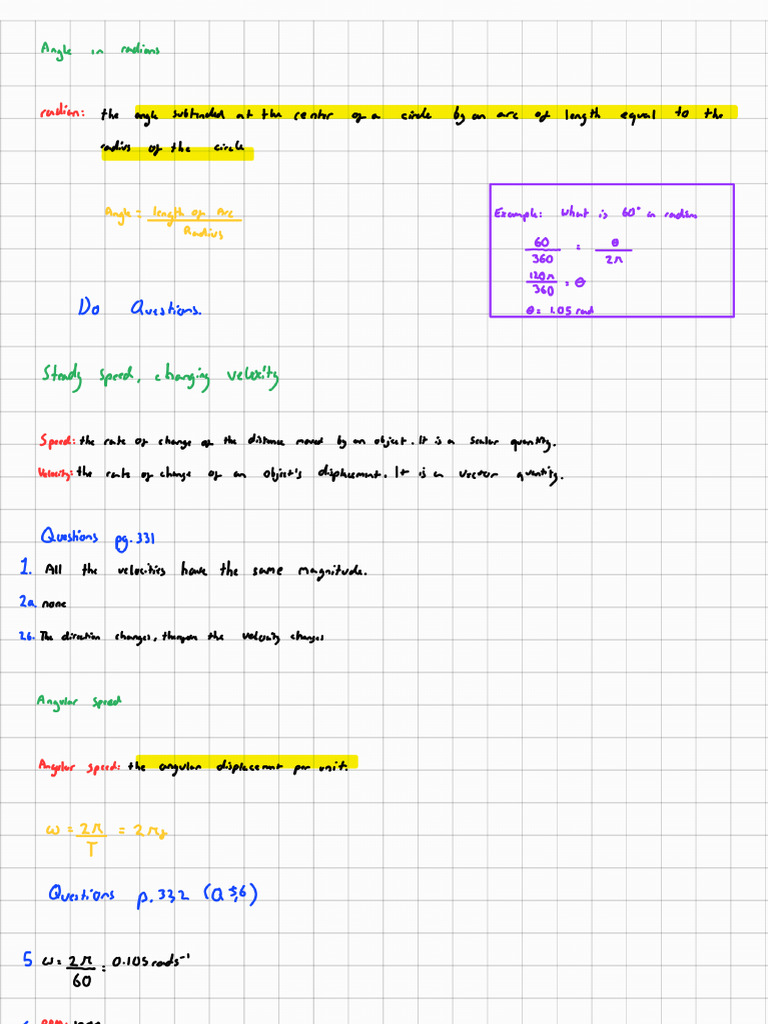 Angle in radians
radian: the angle subtended at the center of a circle by an arc of length equal to the
radius of the circle
Angle = length of Arc / Radius
Example: What is 60° in radians
60/360 = θ/2π
120π/360 = θ
θ = 1.05 rad
Do Questions.
Steady speed, changing velocity
Speed: the rate of change of the distance moved by an object. It is a scalar quantity.
Velocity: the rate of change of an object's displacement. It is a vector quantity.
Questions pg. 331
1. All the velocities have the same magnitude.
2a. none
2b. The direction changes, the velocity changes
Angular speed
Angular speed: the angular displacement per unit.
ω = 2π/T = 2πf
Questions p. 332 (Q 5,6)
5 ω = 2π/60 = 0.105 rads⁻¹